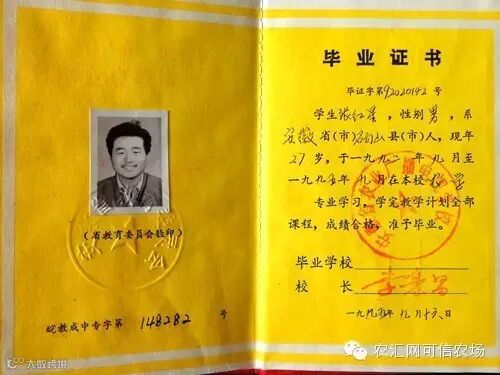 (省教育委员会胜印)
皖教成中专字第 148282 号
毕业证书
毕证字第92020142号
学生张红星，性别男，系
安徽省(市)砀山县(市)人，现年
27岁，于一九九二年九月至
一九九五年九月在本校
专业学习，学完教学计划全部
课程，成绩合格，准予毕业。
毕业学校
校长
一九九五年九月十六日
大数跨境
农汇网可信农场